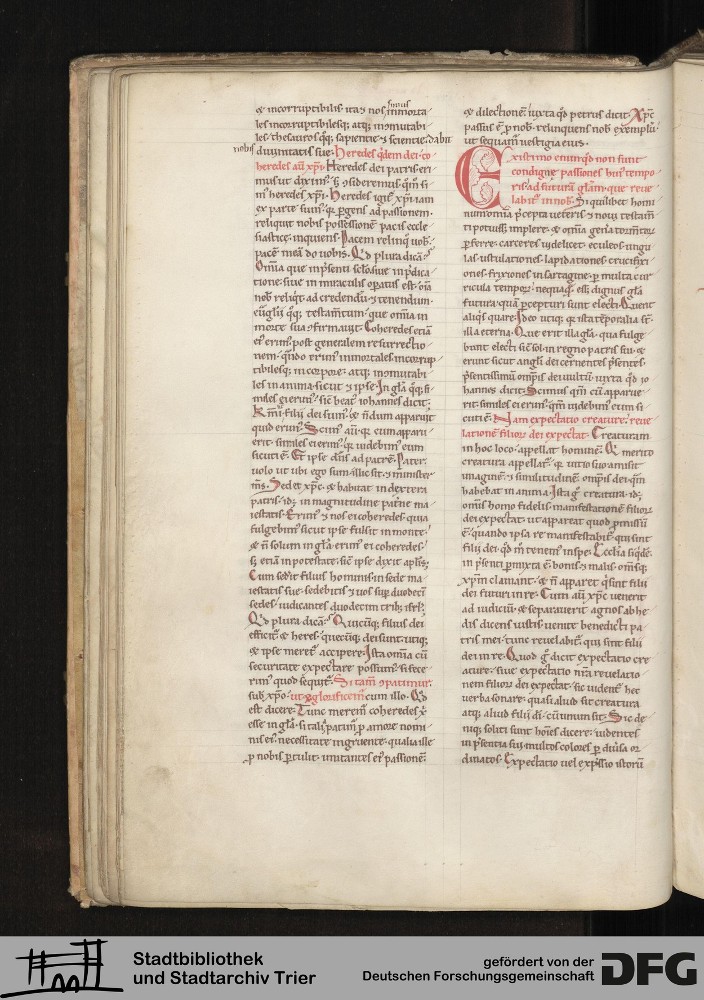 & incorruptibilis ita & nos inmorta
simus
les incorruptibilesq; atq; inmutabi
les thesauros qq; sapientie & scientie dabit
nobis diuinitatis sue. Heredes qdem dei co
heredes au xpi. Heredes dei patris eri
in heredes xpi. Heredes igit xpi iam
ex parte sum qr pergens ad passionem
reliquit nobis possessione pacis eccle
siastice inquiens. Pacem relinq uob.
pace mea do uobis. Qd plura dica
Omia que in psenti sclo siue in pdica
tione siue in miraculis opatus est om
nob reliqt ad credendu & tenendum.
morte sua confirmauit. Coheredes etia
ei erim post generalem resurrectio
nem. qndo erim inmortales incorrup
tibilesq; in corpore. atq; inmutabi
les in anima sicut & ipse. In gla qq; si
miles ei erim sic beat iohannes dicit.
Kmi filii dei sum. & ndum apparuit
quid erim. Scim au qr cum apparu
erit. similes ei erim. qr uidebim eum
sicuti e. Et ipse dns ad patre. Pater
uolo ut ubi ego sum illic sit & minister
ms. Sedet xpc. & habitat in dextera
patris. id; in magnitudine patne ma
iestatis. Erim & nos ei coheredes. quia
fulgebim sicut ipse fulsit in monte.
& n solum in gla erim ei coheredes
s; etia in potestate. sic ipse dixit aplis.
Cum sedit filius hominis in sede ma
iestatis sue. sedebitis & uos sup duodeci
sedes. iudicantes duodecim trib; isrl.
Qd plura dica. Quicuq; filius dei
efficit & heres. quecuq; dei sunt utiq;
& ipse meret accipere. Ista omia cu
securitate expectare possum. si fece
rim quod sequit. Si tam conpatimur.
sub xpo. ut & glorificem cum illo. Qd
est dicere. Tunc merem coheredes x
esse in gla. si tali patim p amore nomi
nis ei necessitate ingruente. qualia ille
p nobis ptulit. imitantes ei passione.
& dilectione iuxta qd petrus dicit. Xpc
passus e p nob. relinquens nob exemplu.
ut sequam uestigia eius.
Existimo enim qd non sunt
condigne passiones hui tempo
ris ad futura glam que reue
labit in nob. Si quilibet homi
nu omia pcepta ueteris & noui testam
ti potuiss implere. & omia genia tormtor
pferre. carceres uidelicet. eculeos. ungu
las. ustulationes. lapidationes. crucifixi
ones. frixiones in sartagine. p multa cur
ricula tempor. nequaq ess dignus gla
futura qua pcepturi sunt electi. Querit
aliqs quare. Ideo utiq; qr ista temporalia st.
illa eterna. Que erit illa gla. qua fulge
bunt electi sic sol in regno patris sui. &
erunt sicut angli dei cernentes psentes
psentissimu omips dei uultu. iuxta qd io
hannes dicit. Scimus qm cu apparue
rit. similes ei erim. qm uidebim eum si
cuti e. Nam expectatio creature. reue
latione filior dei expectat. Creaturam
in hoc loco appellat homine. Qr merito
creatura appellat. qr uitio suo amisit
imagine & similitudine omips dei. qm
habebat in anima. Ista g creatura. id;
omis homo fidelis. manifestatione filior
dei expectat. ut appareat quod pmissu
e. quando ipsa re manifestabit. qui sint
filii dei. qd m tenem in spe. Ecclia siqde
in psenti pmixta e. bonis & malis. omisq;
xpm clamant. & n apparet q sint filii
dei futuri in re. Cum au xpc uenerit
ad iudiciu. & separauerit agnos ab he
dis dicens iustis. uenite benedicti pa
tris mei. tunc reuelabit. qui sint filii
dei in re. Quod g dicit expectatio cre
ature. siue expectatio nra reuelatio
nem filior dei expectat. sic uident hec
uerba sonare. quasi aliud sit creatura
atq; aliud filii di. cu unum sit. Sic de
niq; soliti sunt hoies dicere. uidentes
in psentia sui multos colores p diuisa or
dinatos. Expectatio uel expssio istoru
Stadtbibliothek
und Stadtarchiv Trier
gefördert von der
Deutschen Forschungsgemeinschaft
DFG